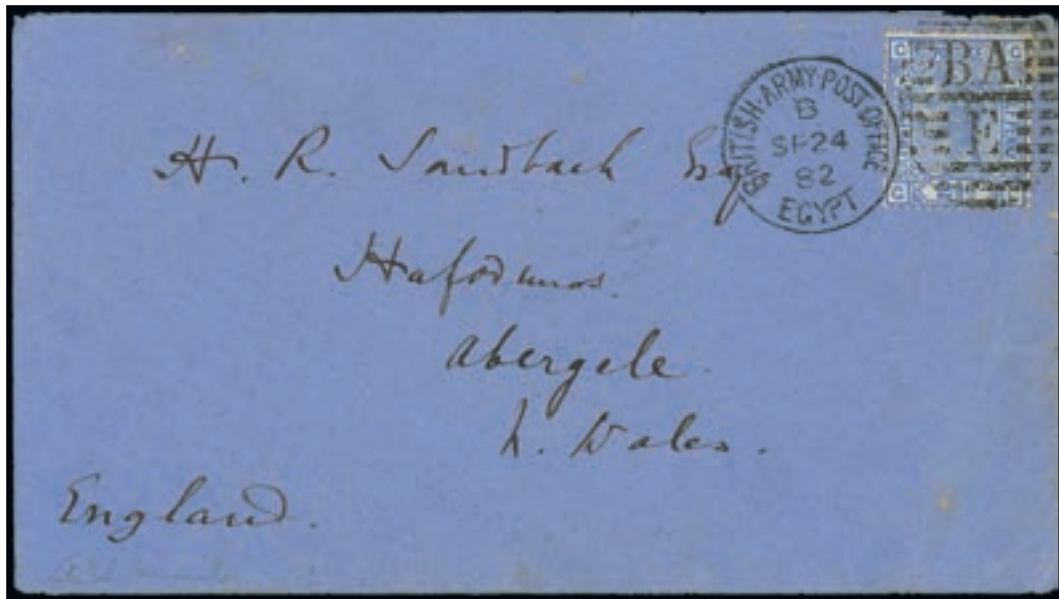 BRITISH·ARMY·POST OFFICE
B
SP 24
82
EGYPT
BA
E
H. R. Sandbach Esq
Hafodunos.
Abergele.
N. Wales.
England.